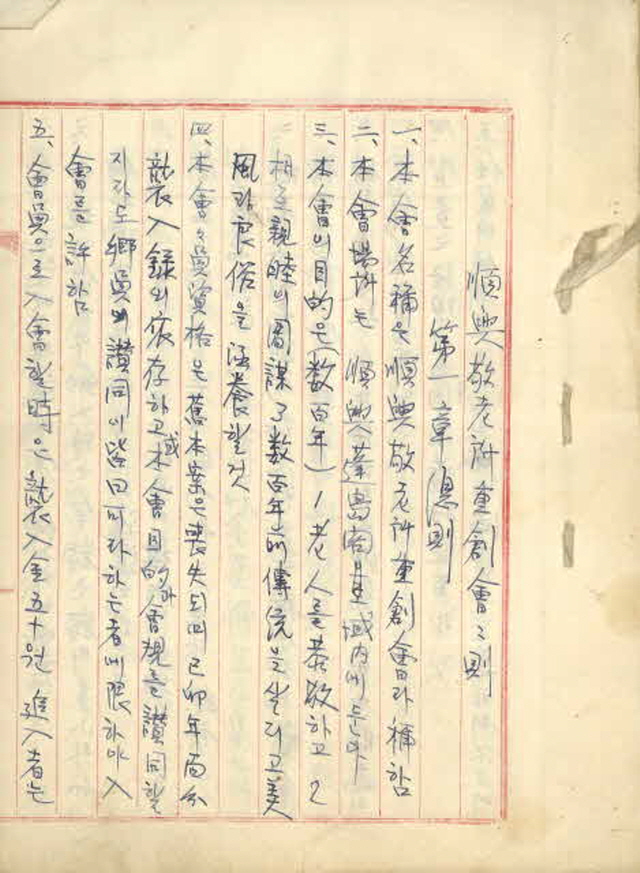 順興敬老所重創會〻則
第一章 總則
一、本會名稱은 順興敬老所重創會라 稱함
二、本會場所는 順興蓬島南基域內에 둔다
三、本會의目的은(数百年) 1 老人를恭敬하고 2
相互親睦의圖謀 3 数百年前傳統을살리고美
風과良俗을涵養할것
四、本會〻員資格은舊本案은喪失되며己卯年
襲入錄의依存하고或本會目的과會規를讃同할
지라도鄕員의讃同이皆曰可라하는者에限하야入
會를許함
五、會員으로入會할時은襲入金五十원 進入者는